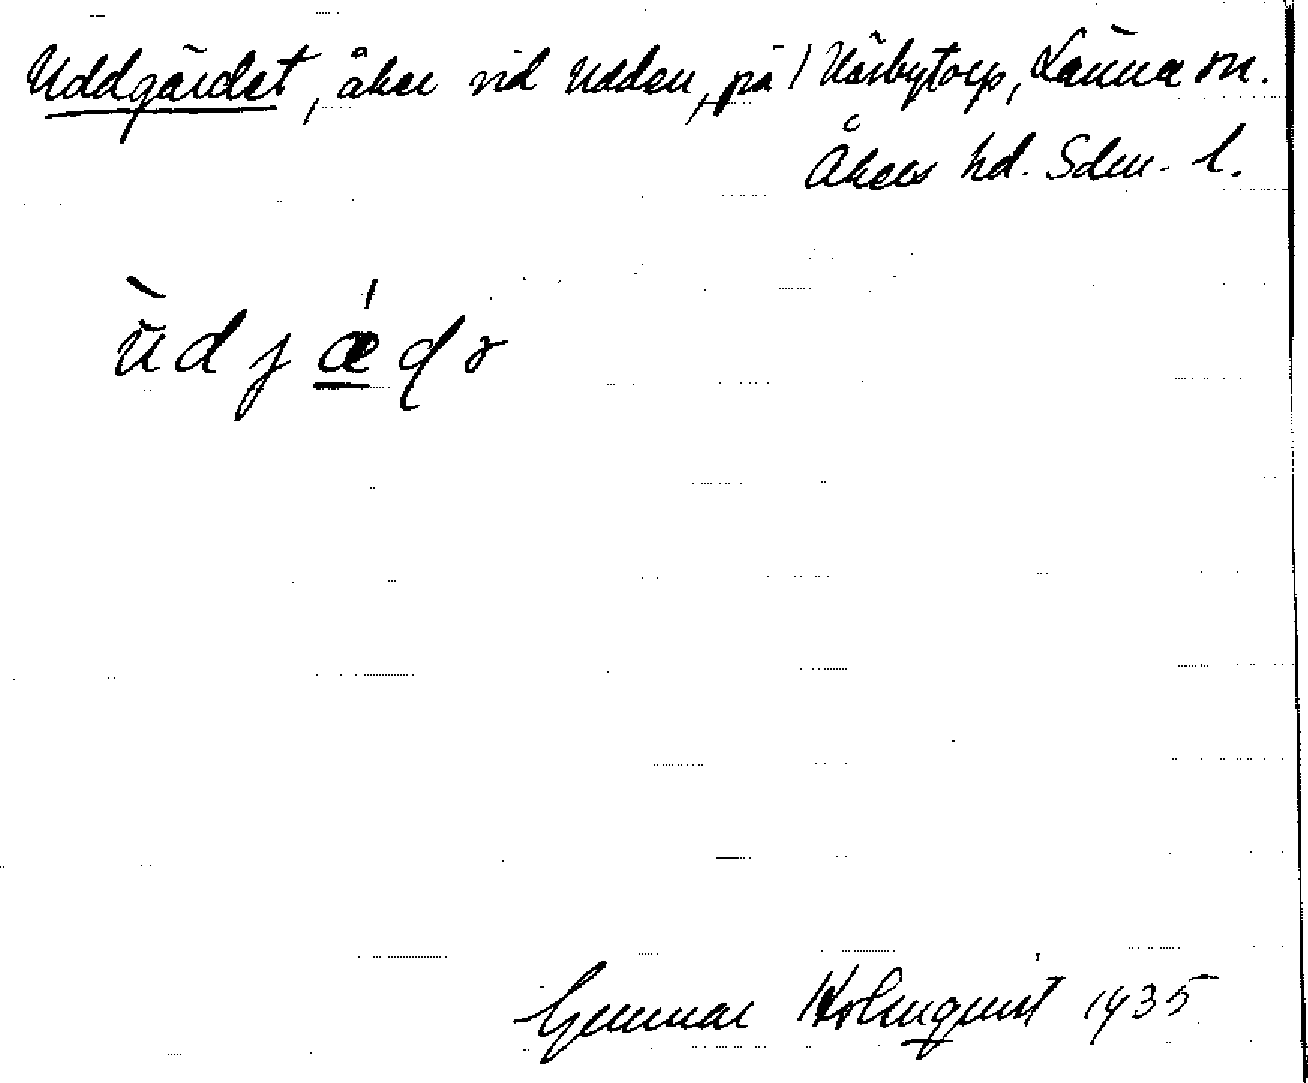 Uddgärdet, åker vid Udden, på Närbytorp, Länna sn.
Åkers hd. Sdm. l.
ùdjǽ̲dɤ
Gunnar Holmquist 1935